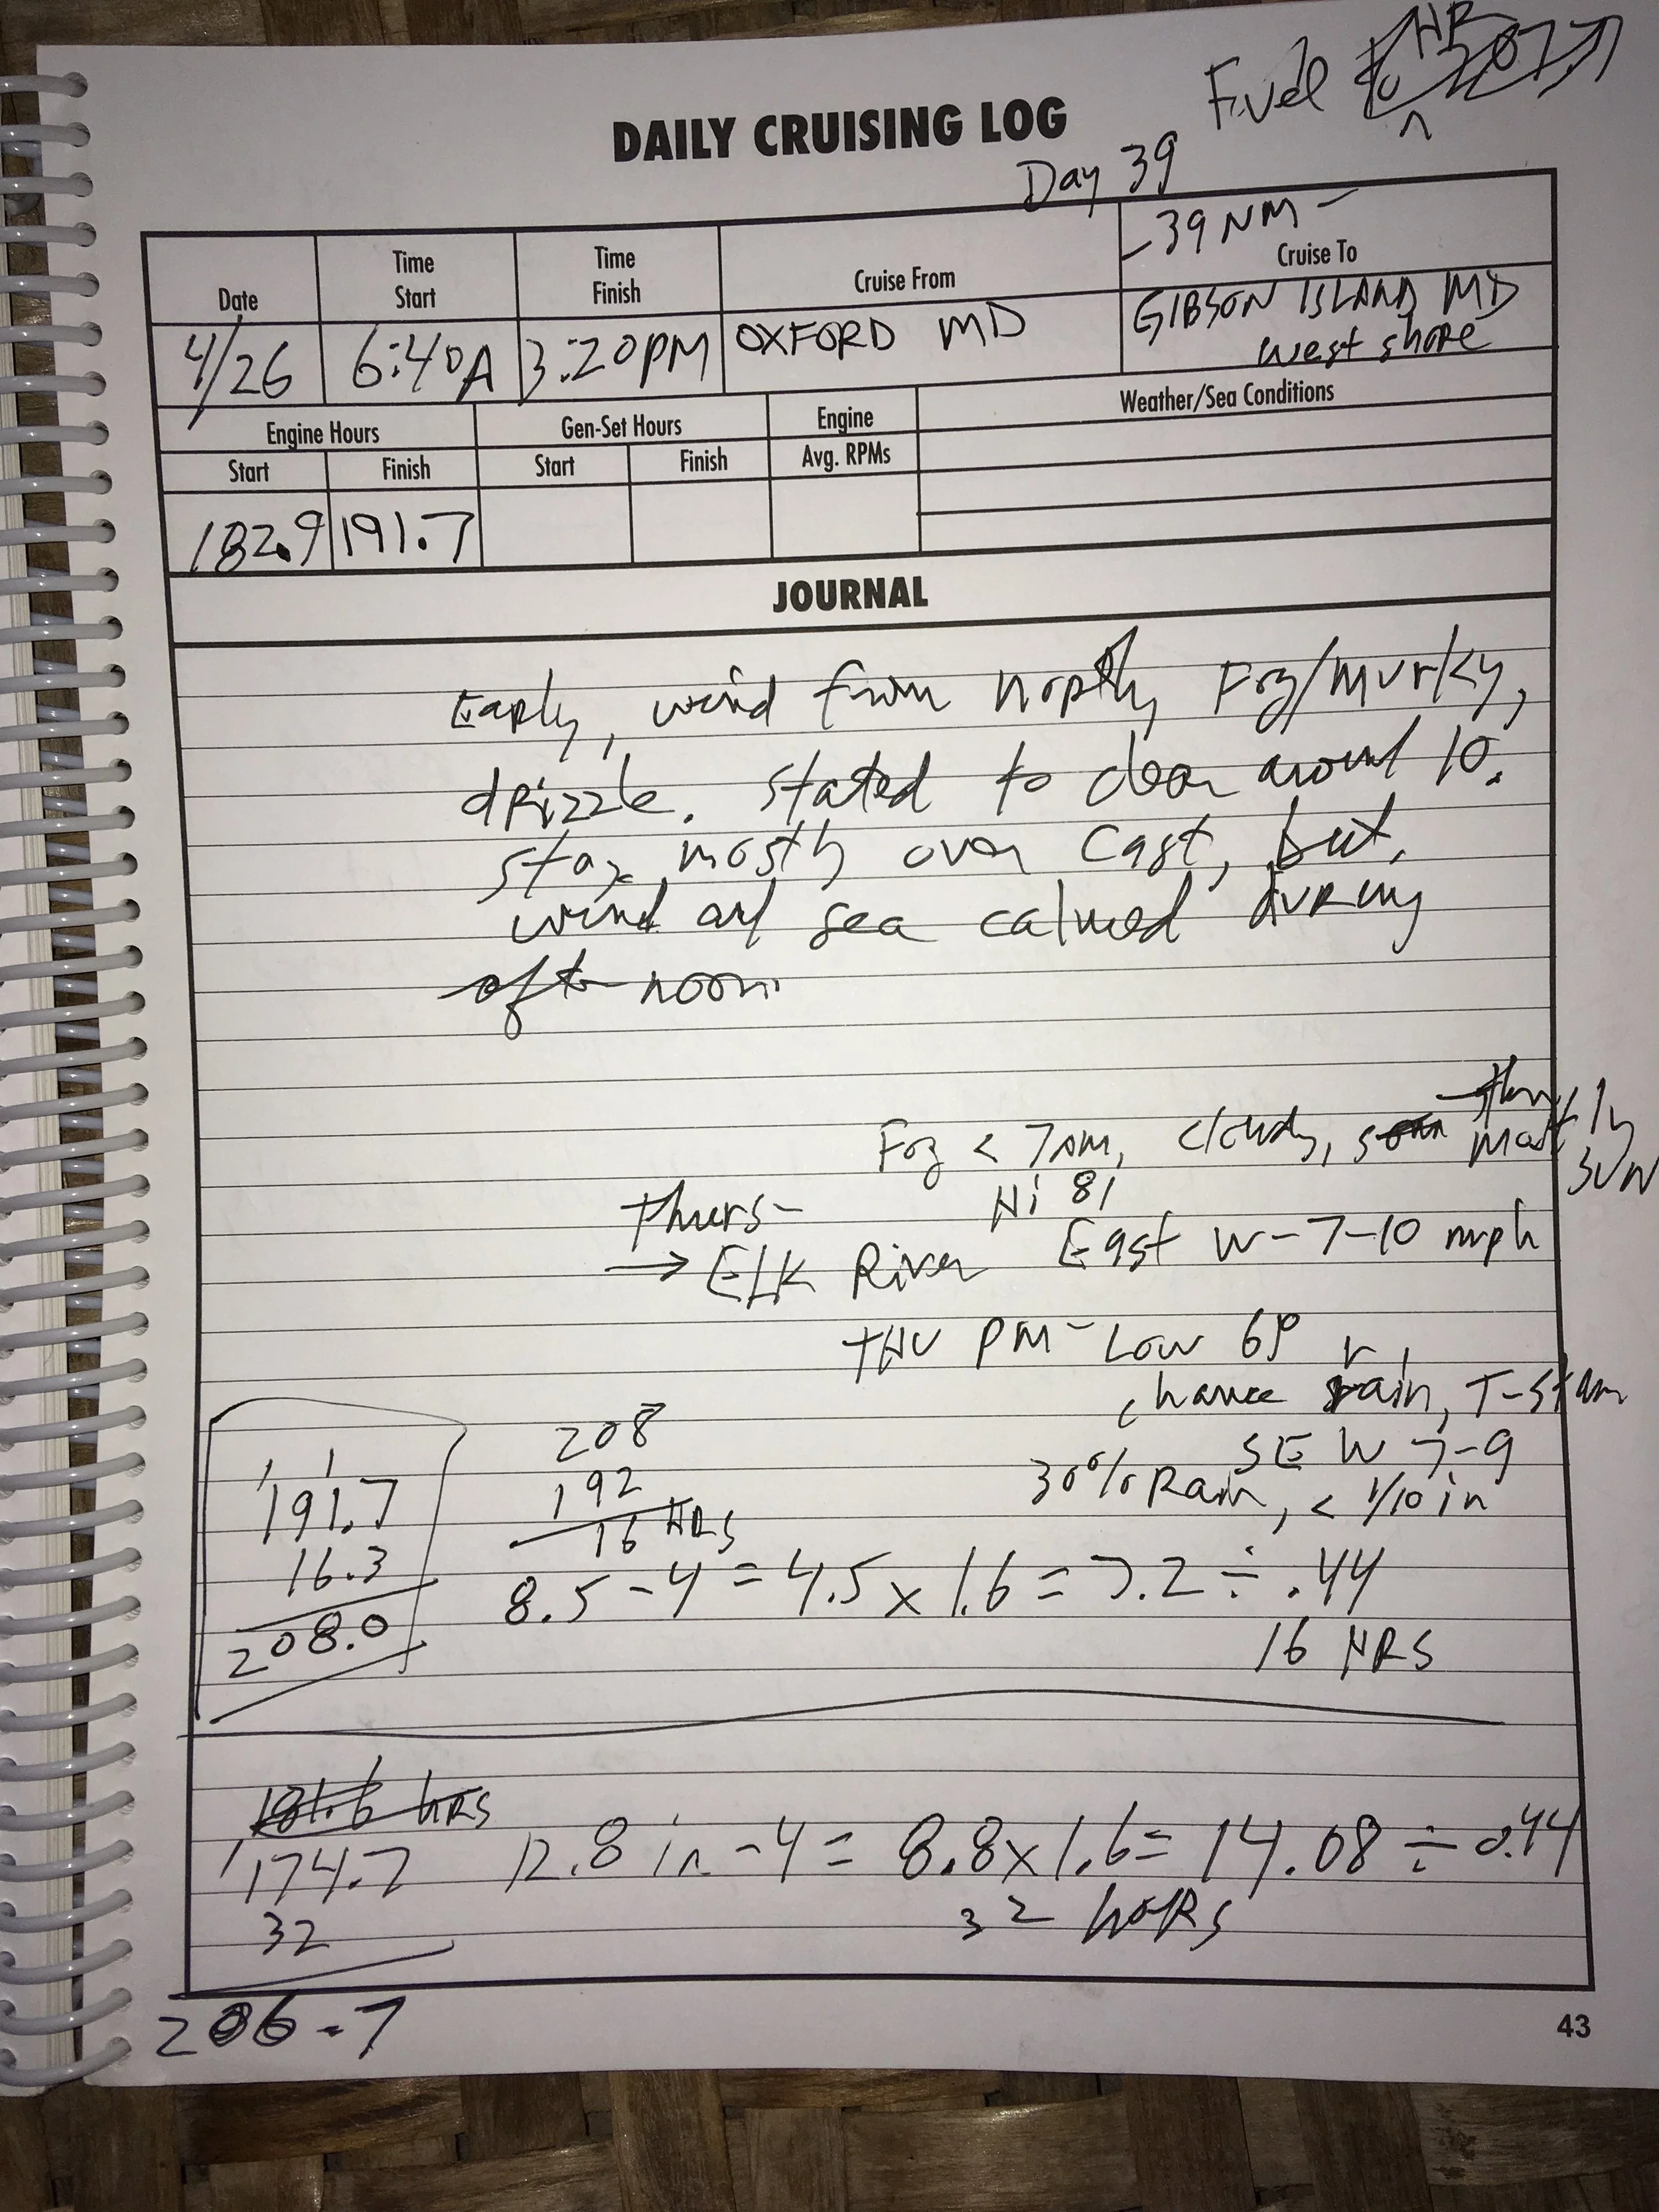 Fuel HR
DAILY CRUISING LOG
Day 39
-39 NM-
Date Time Start Time Finish Cruise From Cruise To
4/26 6:40A 3:20PM OXFORD MD GIBSON ISLAND MD
west shore
Engine Hours Gen-Set Hours Engine Weather/Sea Conditions
Start Finish Start Finish Avg. RPMs
182.9 191.7
JOURNAL
Early, wind from north, Fog/murky,
drizzle. stated to clear around 10.
stay mostly over cast, but,
wind and sea calmed during
afternoon
then
Fog < 7AM, cloudy, mostly
sun
Hi 81
Thurs-
→ Elk River East W-7-10 mph
THU PM- Low 69
chance rain, T-storm
SE W 7-9
30% Rain, < 1/10 in
1 1
191.7
16.3
208.0
208
192
16 HRS
8.5 - 4 = 4.5 x 1.6 = 7.2 ÷ .44
16 HRS
181.6 hrs
174.7 12.8 in - 4 = 8.8 x 1.6 = 14.08 ÷ 0.44
32 32 hoRs
206.7
43